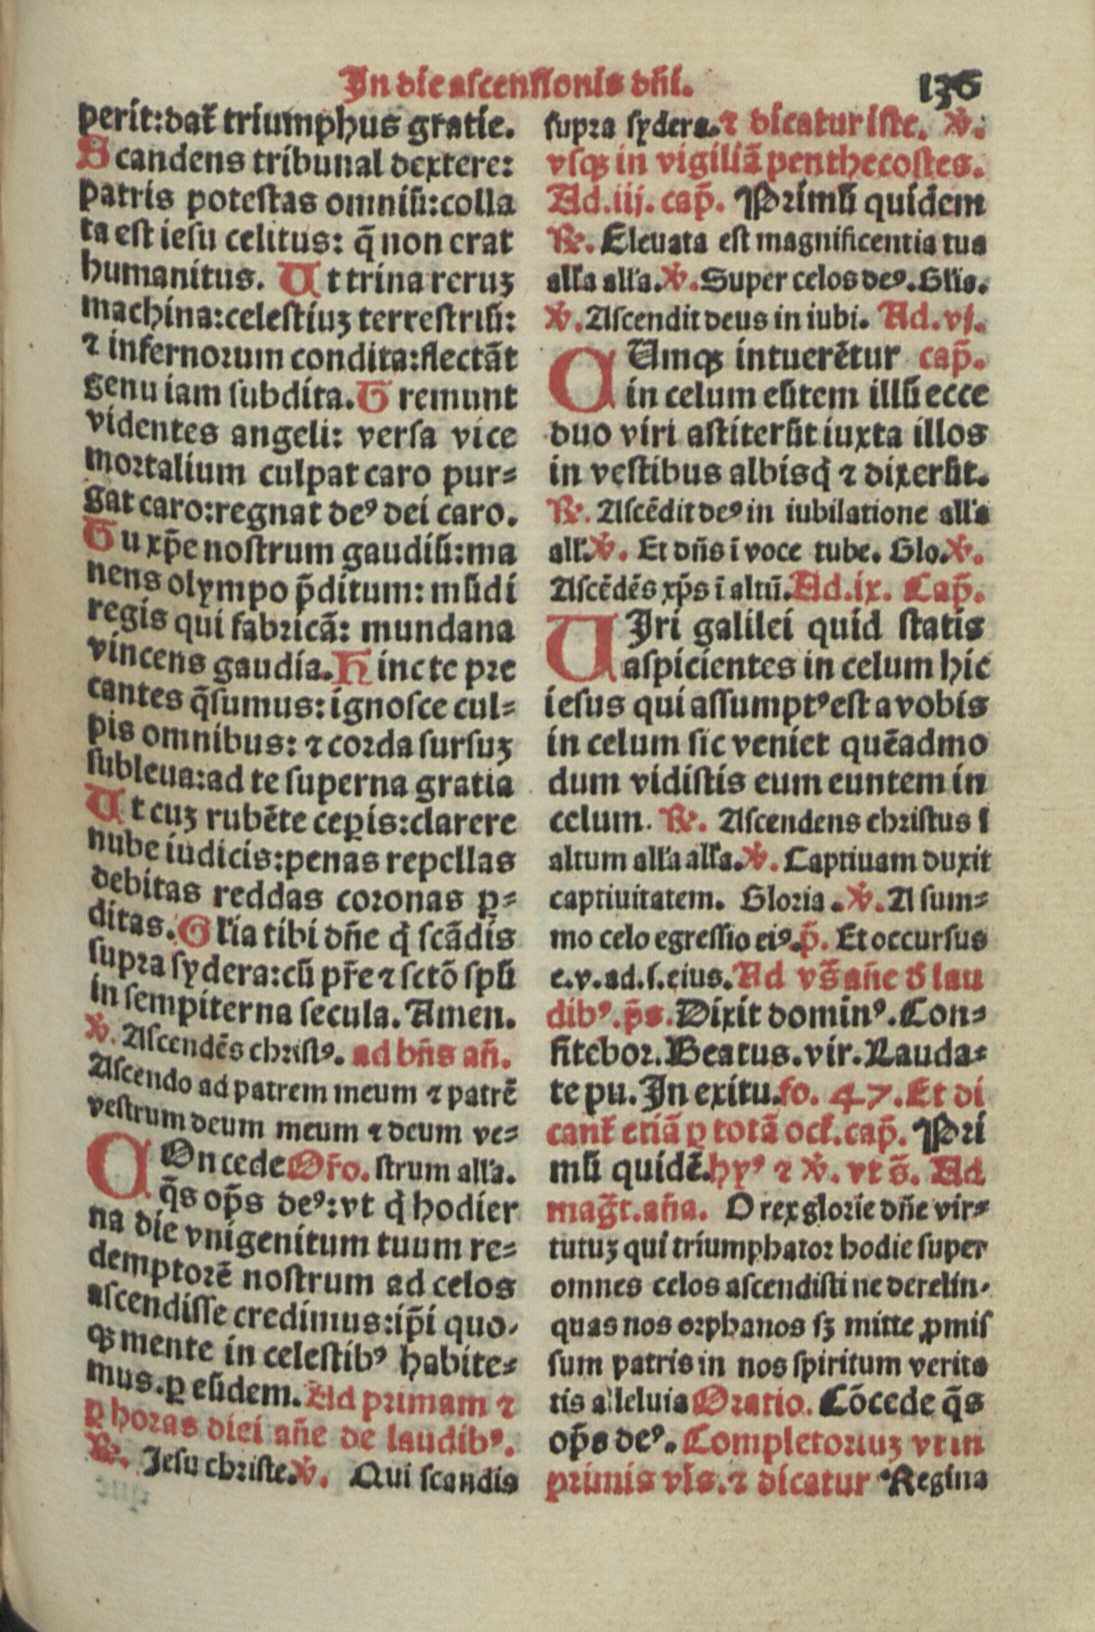 In die ascensionis dñi.
136
perit:dat̄ triumphus gratie.
Scandens tribunal dextere:
patris potestas omniū:colla
ta est iesu celitus: q̄ non erat
humanitus. Ut trina reruꝫ
machina:celestiuꝫ terrestriū:
⁊ infernorum condita:flectāt
genu iam subdita. Tremunt
videntes angeli: versa vice
mortalium culpat caro pur-
gat caro:regnat deꝰ dei caro.
Tu xp̄e nostrum gaudiū:ma
nens olympo p̄ditum: mūdi
regis qui fabricā: mundana
vincens gaudia. Hinc te pre
cantes q̄sumus: ignosce cul-
pis omnibus: ⁊ corda sursuꝫ
subleua:ad te superna gratia
Ut cuꝫ rubēte ceꝑis:clarere
nube iudicis:penas repellas
debitas reddas coronas ꝑ-
ditas. Gl'ia tibi dñe q̄ scādis
supra sydera:cū pr̄e ⁊ sctō spū
in sempiterna secula. Amen.
℣. Ascendēs christꝰ. ad bñs añ.
Ascendo ad patrem meum ⁊ patrē
vestrum deum meum ⁊ deum ve-
COncede Or̄o. strum alľa.
q̄s op̄s deꝰ:vt q̄ hodier
na die vnigenitum tuum re-
demptorē nostrum ad celos
ascendisse credimus:ip̄i quo-
qꝫ mente in celestibꝰ habite-
mus.ꝑ eūdem. Ad primam ⁊
ꝑ horas diei añe de laudibꝰ.
℟. Jesu christe. ℣. Qui scandis
supra sydera. ⁊ dicatur iste. ℣.
vsqꝫ in vigiliā penthecostes.
Ad.iij. cap̄. Primū quidem
℟. Eleuata est magnificentia tua
alľa alľa. ℣. Super celos deꝰ. Glia.
℣. Ascendit deus in iubi. Ad.vj.
CUmqꝫ intuerētur cap̄.
in celum eūtem illū ecce
duo viri astiterūt iuxta illos
in vestibus albisq̄ ⁊ dixerūt.
℟. Ascēdit deꝰ in iubilatione alľa
alľ. ℣. Et dñs ī voce tube. Glo. ℣.
Ascēdēs xp̄s ī altū. Ad.ix. Cap̄.
UIri galilei quid statis
aspicientes in celum hic
iesus qui assumptꝰ est a vobis
in celum sic veniet quēadmo
dum vidistis eum euntem in
celum. ℟. Ascendens christus ī
altum alľa alľa. ℣. Captiuam duxit
captiuitatem. Gloria. ℣. A sum-
mo celo egressio eiꝰ. p̄. Et occursus
e.v.ad.s.eius. Ad vs̄ añe d̄ lau
dibꝰ.p̄s. Dixit dominꝰ. Con-
fitebor. Beatus.vir. Lauda-
te pu. In exitu. fo. 47. Et di
cant̄ etiā ꝑ totā oct̄. cap̄. Pri
mū quidē. hyꝰ ⁊ ℣. vt s̄. Ad
mag̅t. aña. O rex glorie dñe vir-
tutuꝫ qui triumphator hodie super
omnes celos ascendisti ne derelin-
quas nos orphanos sꝫ mitte ꝓmis
sum patris in nos spiritum verita
tis alleluia Oratio. Cōcede q̄s
op̄s deꝰ. Completoriuꝫ vt in
primis vīs. ⁊ dicatur Regina